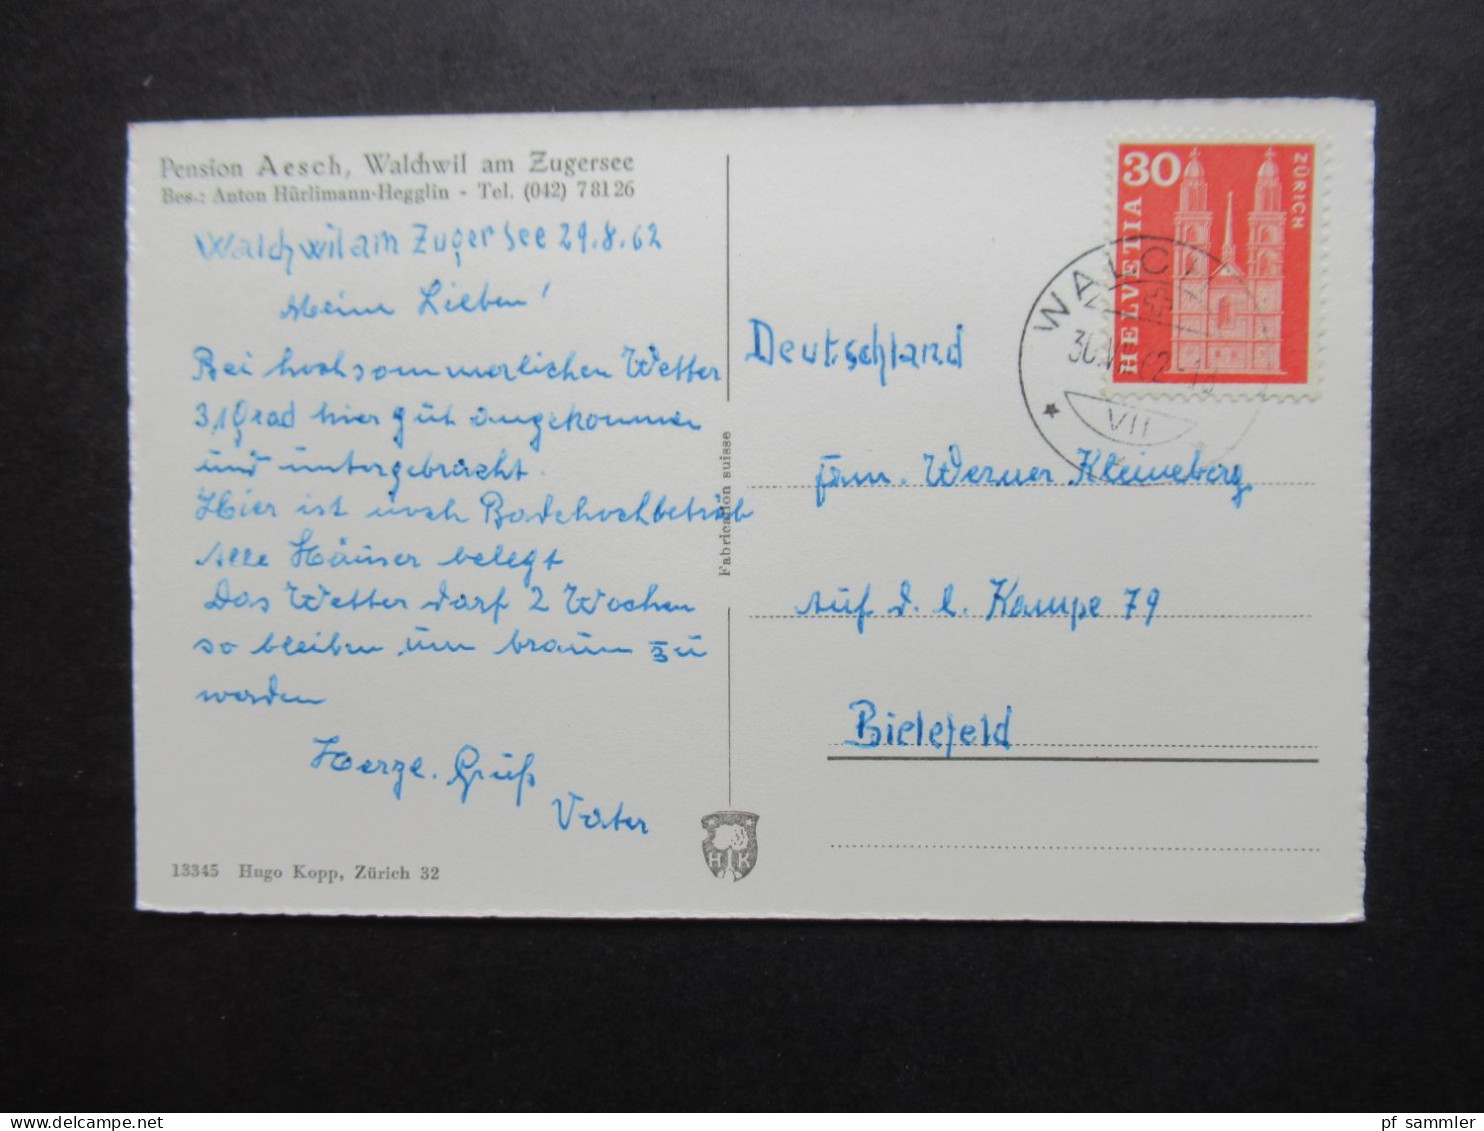 Pension Aesch, Walchwil am Zugersee
Bes.: Anton Hürlimann-Hegglin - Tel. (042) 78126
Walchwil am Zuger See 29.8.62
Meine Lieben!
Bei hochsommerlichen Wetter
31 Grad hier gut angekommen
und untergebracht.
Hier ist noch Badehochbetrieb
Alle Häuser belegt
Das Wetter darf 2 Wochen
so bleiben um braun zu
werden
Herzl. Gruß
Vater
13345 Hugo Kopp, Zürich 32
Fabrication suisse
H K
30
ZÜRICH
HELVETIA
WALCH
30.VIII.62-18
VII
Deutschland
Fam. Werner Kleineberg
Auf d. l. Kampe 79
Bielefeld
pf sammler